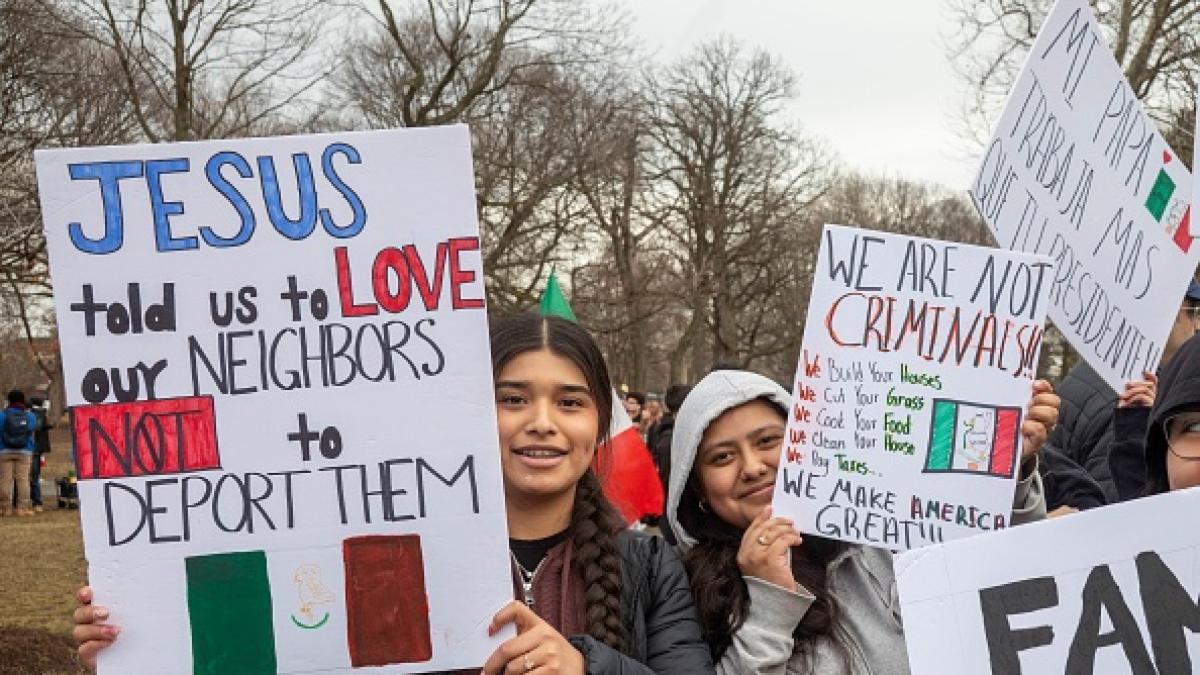 JESUS
told us to LOVE
our NEIGHBORS
NOT to
DEPORT THEM
WE ARE NOT
CRIMINALS!!
We Build Your Houses
We Cut Your Grass
We Cook Your Food
We Clean Your House
We Pay Taxes...
WE MAKE AMERICA
GREAT!!!
MI PAPA
TRABAJA MAS
QUE TU
PRESIDENTE!!
FAM